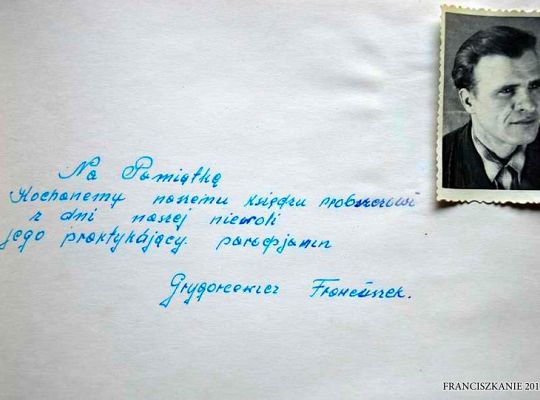 Na Pamiątkę
Kochanemy naszemu księdzu proboszczowi
z dni naszej niewoli
jego praktykający parafjanin
Grygorcewicz Franciszek.
FRANCISZKANIE 201